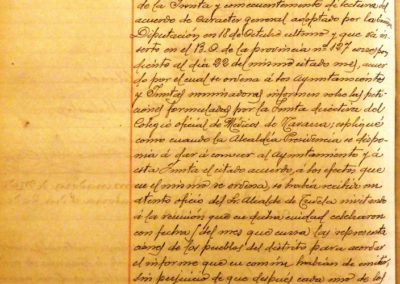 de la Junta y consecuentamente de lectura del
acuerdo de caracter general adoptado por la
Diputación en 18 de Octubre ultimo y que va in-
serto en el B. O. de la provincia nº 127 corres
pdiente al dia 22 del mismo citado mes, acuer-
do por el cual se ordena á los Ayuntamientos
y Juntas informen sobre las peti-
ciones formuladas por la Junta directiva del
Colegio oficial de Médicos de Navarra; expliqué
como cuando la Alcaldía Presidencia se dispo-
nia á dar á conocer al Ayuntamiento y á
esta Junta el citado acuerdo, á los efectos que
en el mismo se ordena, se habia recibido un
atento oficio del Sr. Alcalde de Tudela invitando
á la reunión que en dicha ciudad celebraron
con fecha del mes que cursa los representa
ciones de los pueblos del distrito para acordar
el informe que en comun habian de emitir,
sin perjuicio de que después cada uno de los